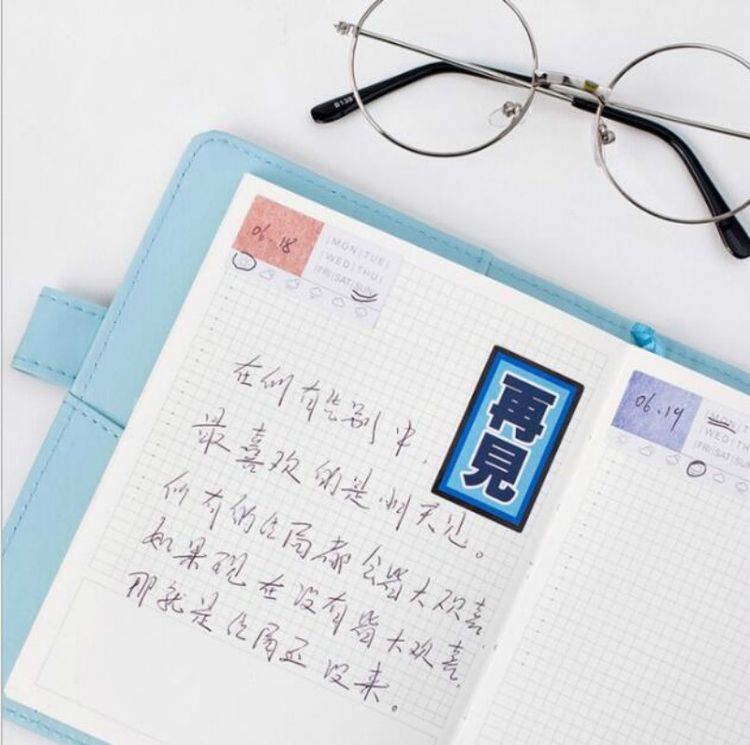 06.18
|MON|TUE|
|WED|THU|
|FRI|SAT|SUN|
在所有告别中,
最喜欢的是明天见。
所有的结局都会皆大欢喜,
如果现在没有皆大欢喜,
那就是结局还没来。
再見
06.19
|MON|TUE
|WED|THU
|FRI|SAT|SUN